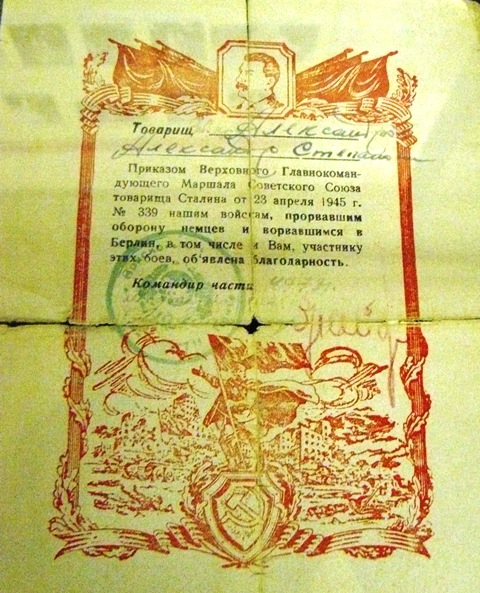 Товарищ Александров
Александр Степан
Приказом Верховного Главнокоман-
дующего Маршала Советского Союза
товарища Сталина от 23 апреля 1945 г.
№ 339 нашим войскам, прорвавшим
оборону немцев и ворвавшимся в
Берлин, в том числе и Вам, участнику
этих боев, об'явлена благодарность.
Командир части